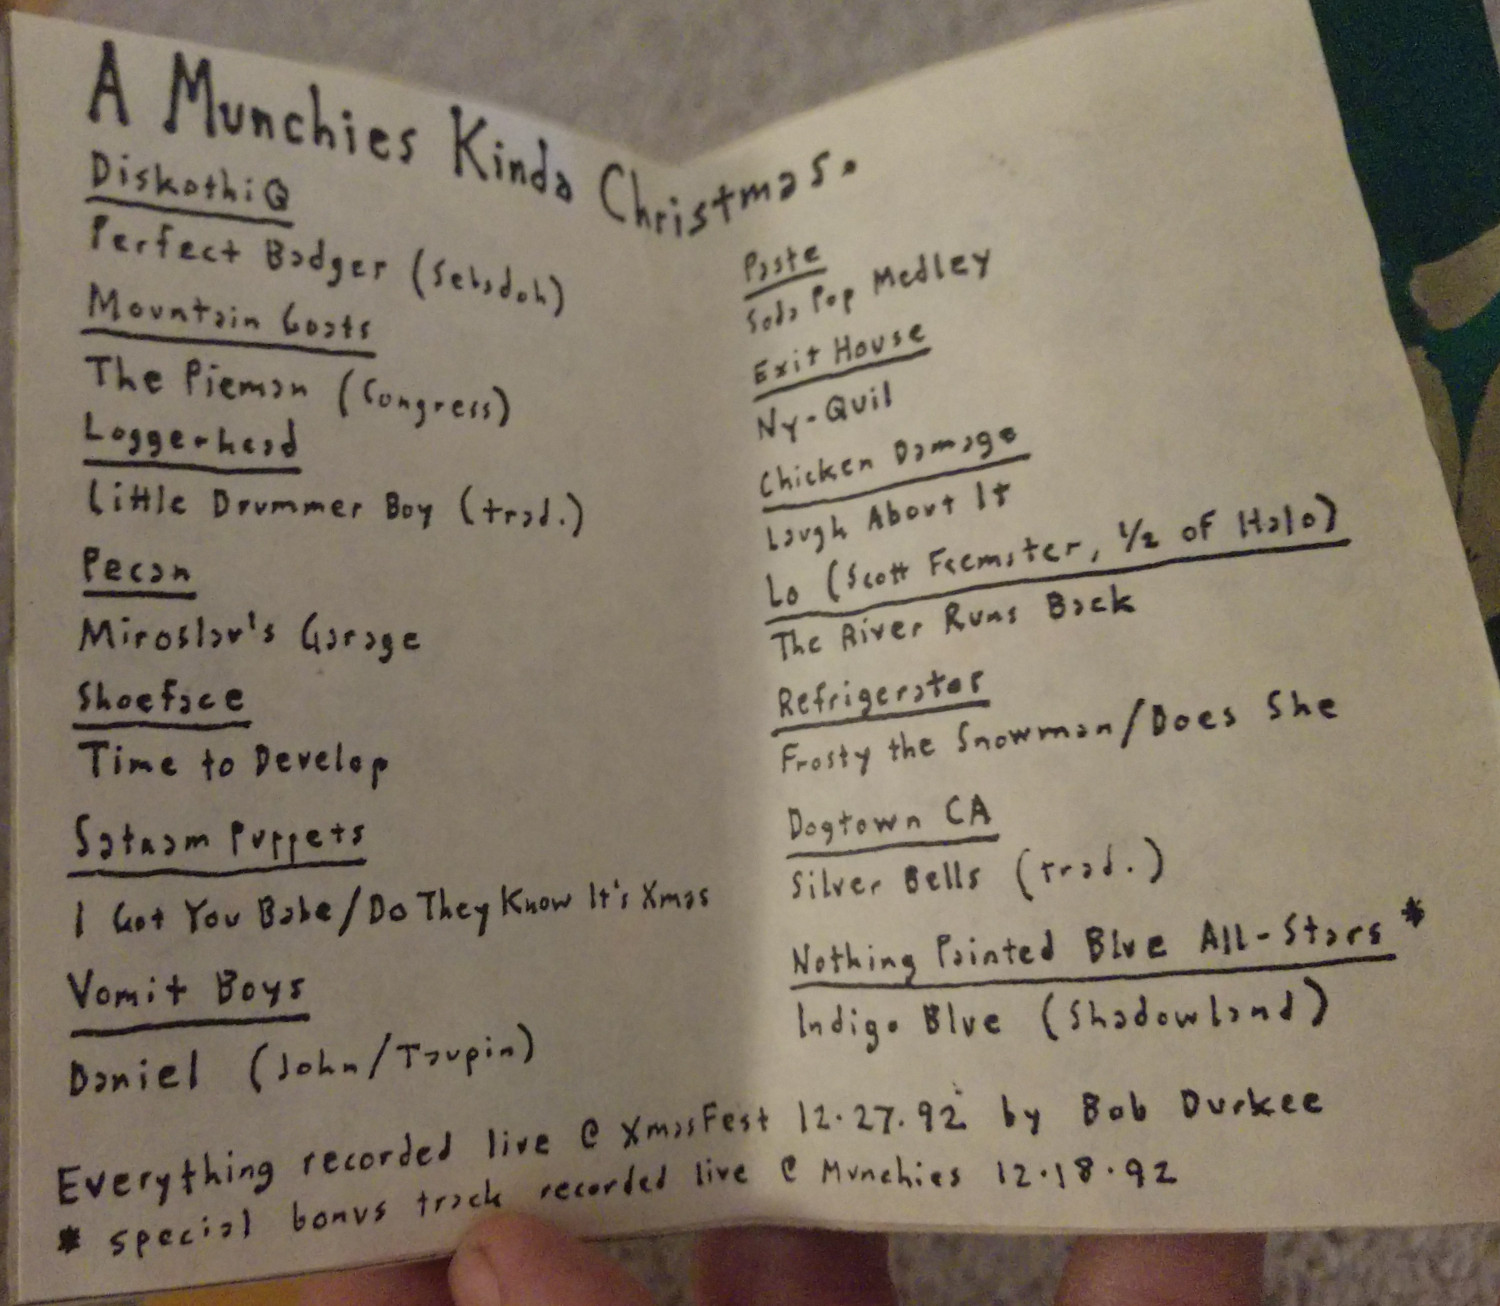 A Munchies Kinda Christmas.
DiskothiQ
Perfect Badger (Sebadoh)
Mountain Goats
The Pieman (Congress)
Loggerhead
Little Drummer Boy (trad.)
Pecan
Miroslav's Garage
Shoeface
Time to Develop
Satnam Puppets
I Got You Babe/Do They Know It's Xmas
Vomit Boys
Daniel (John/Taupin)
Paste
Soda Pop Medley
Exit House
Ny-Quil
Chicken Damage
Laugh About It
Lo (Scott Feemster, 1/2 of Halo)
The River Runs Back
Refrigerator
Frosty the Snowman/Does She
Dogtown CA
Silver Bells (trad.)
Nothing Painted Blue All-Stars *
Indigo Blue (Shadowland)
Everything recorded live @ XmasFest 12.27.92 by Bob Durkee
* special bonus track recorded live @ Munchies 12.18.92